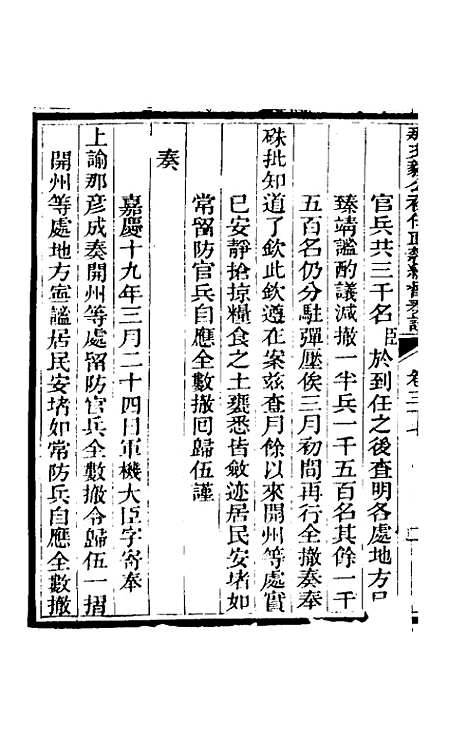 官兵共三千名臣於到任之後查明各處地方已
臻靖謐酌議減撤一半兵一千五百名其餘一千
五百名仍分駐彈壓俟三月初間再行全撤奏奉
硃批知道了欽此欽遵在案兹查月餘以來開州等處實
已安靜搶掠糧食之土甕悉皆斂迹居民安堵如
常留防官兵自應全數撤回歸伍謹
奏
嘉慶十九年三月二十四日軍機大臣字寄奉
上諭那彥成奏開州等處留防官兵全數撤令歸伍一摺
開州等處地方寧謐居民安堵如常防兵自應全數撤